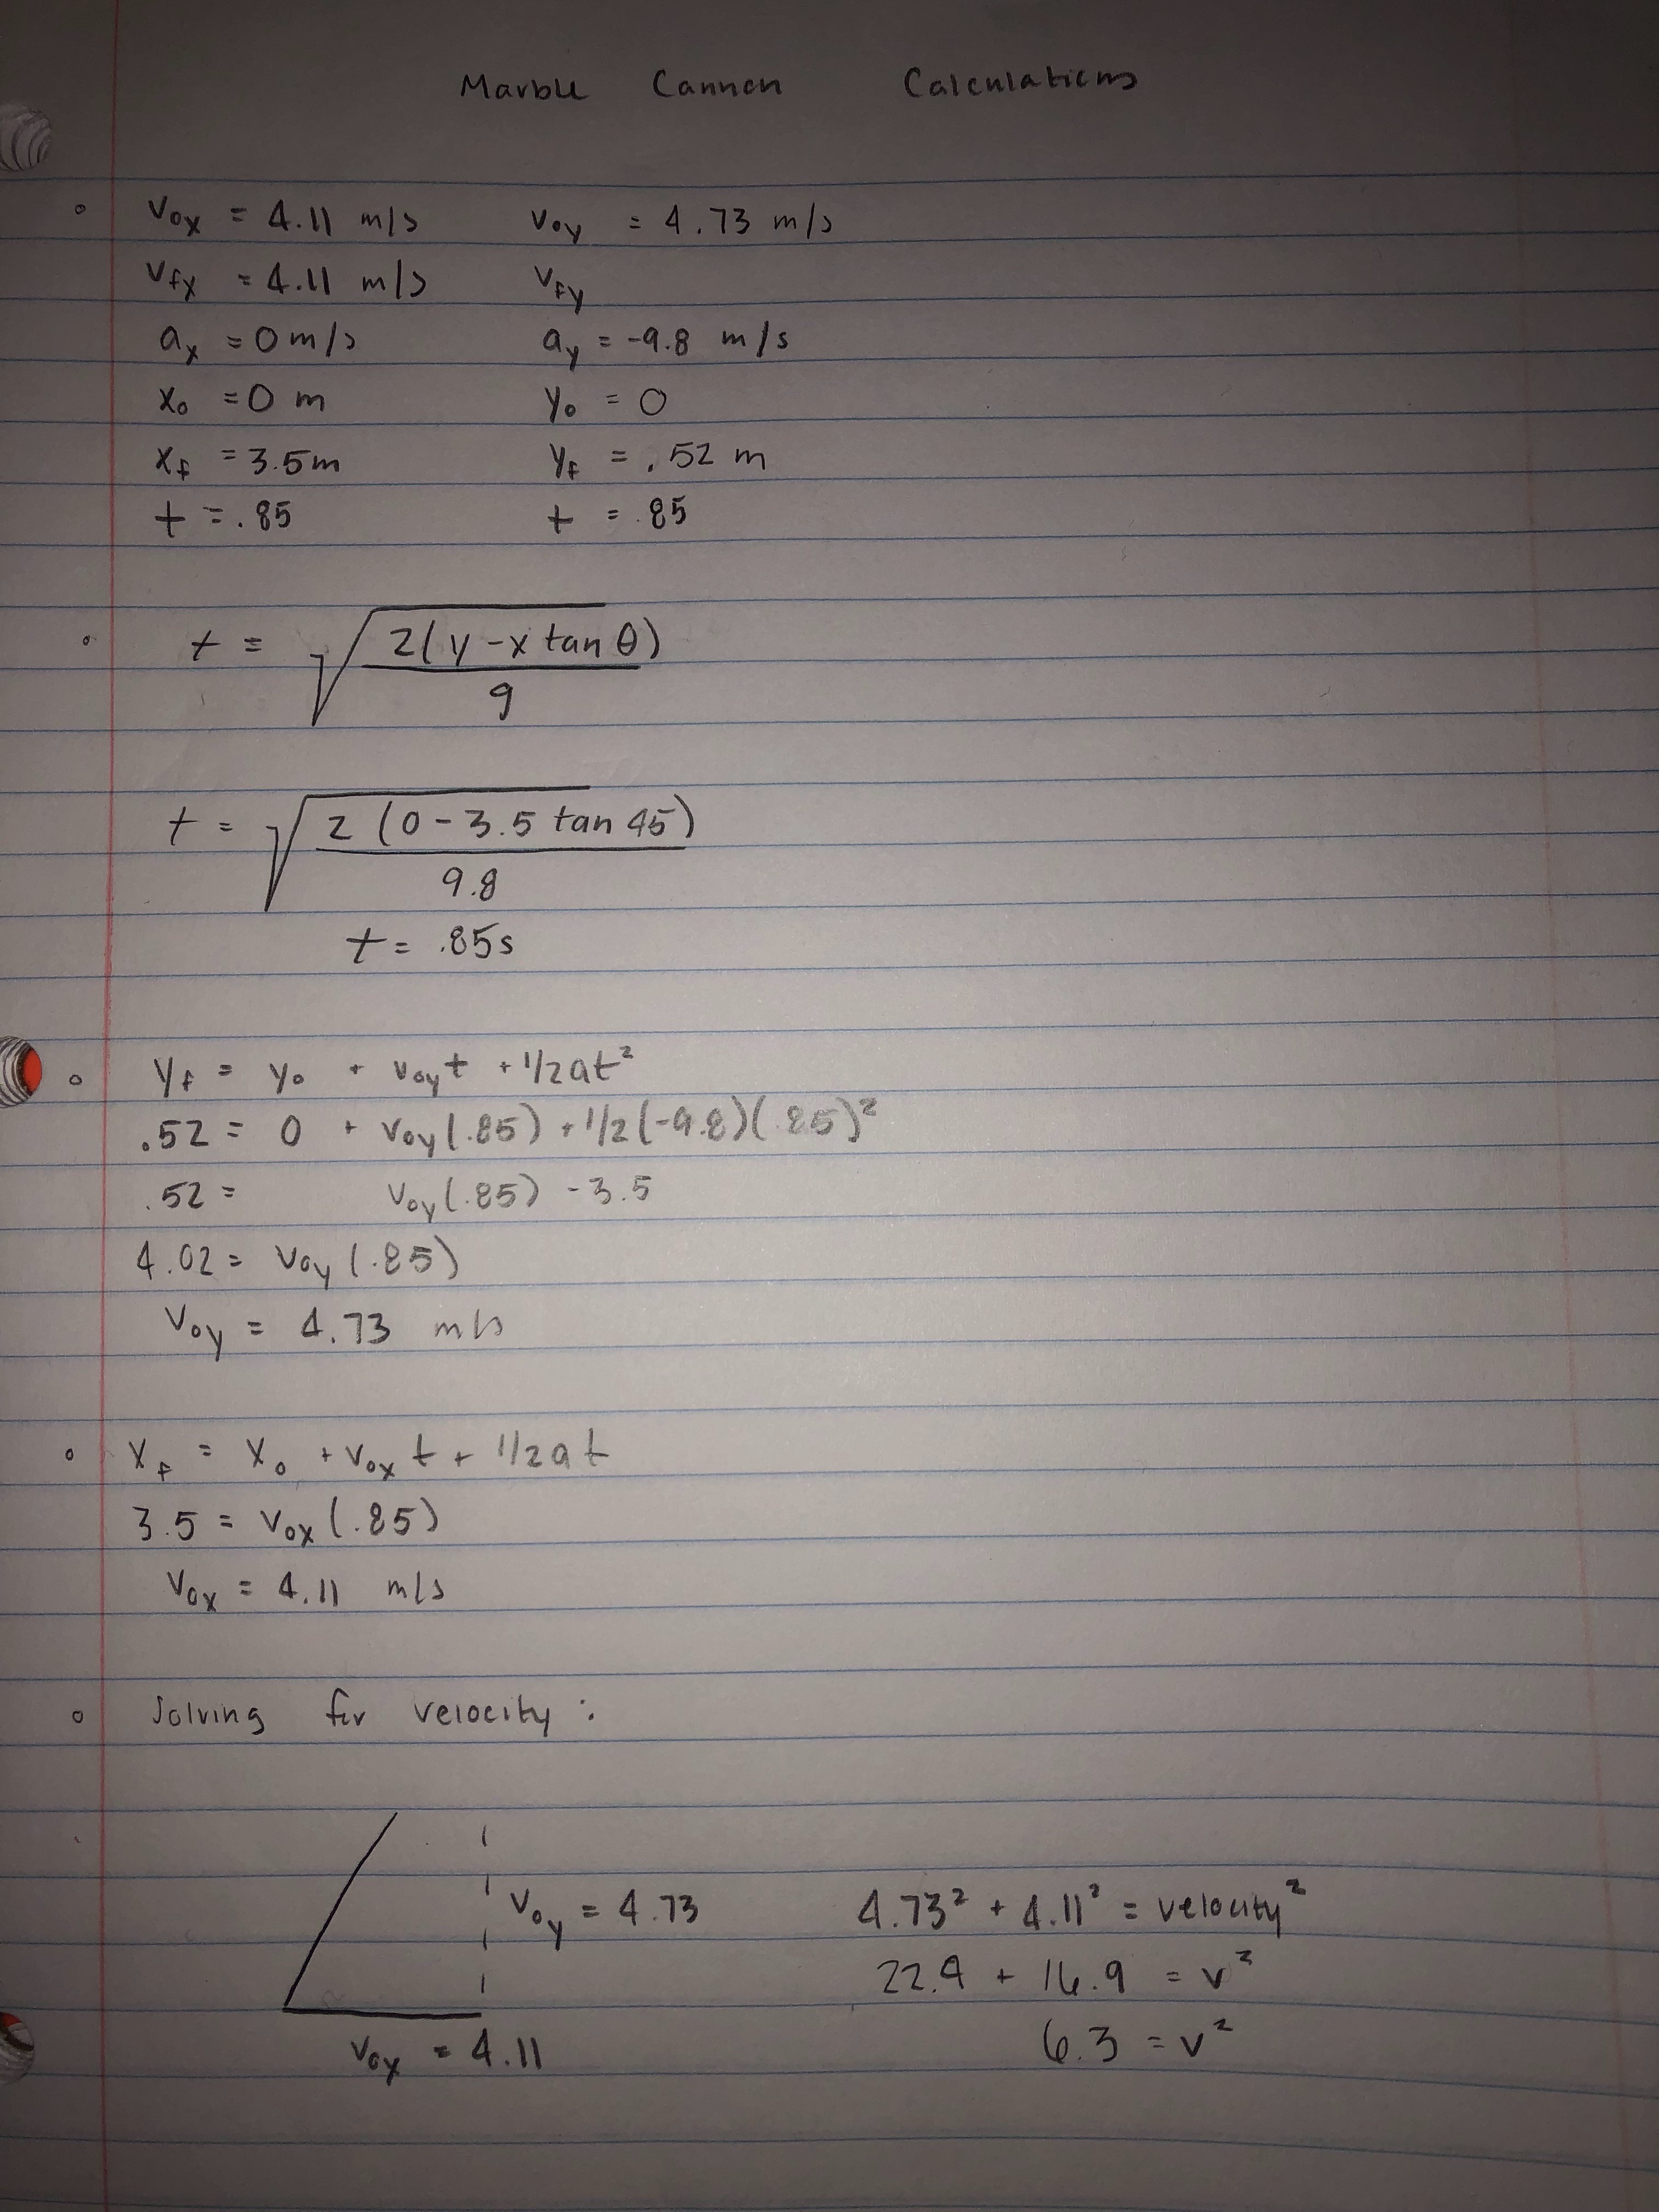 Marble Cannon Calculations
° Vox = 4.11 m/s Voy = 4.73 m/s
Vfx = 4.11 m/s Vfy
ax = 0 m/s ay = -9.8 m/s
x₀ = 0 m y₀ = 0
xf = 3.5m yf = .52 m
t = .85 t = .85
° t = √2(y - x tan θ)
g
t = √2 (0 - 3.5 tan 45)
9.8
t = .85s
° yf = y₀ + voyt + 1/2at²
.52 = 0 + Voy(.85) + 1/2(-9.8)(.85)²
.52 = Voy(.85) -3.5
4.02 = Voy(.85)
Voy = 4.73 m/s
° Xf = X₀ + Vox t + 1/2at
3.5 = Vox(.85)
Vox = 4.11 m/s
° Solving for velocity:
Voy = 4.73 4.73² + 4.11² = velocity²
22.4 + 16.9 = v²
Vox = 4.11 6.3 = v²